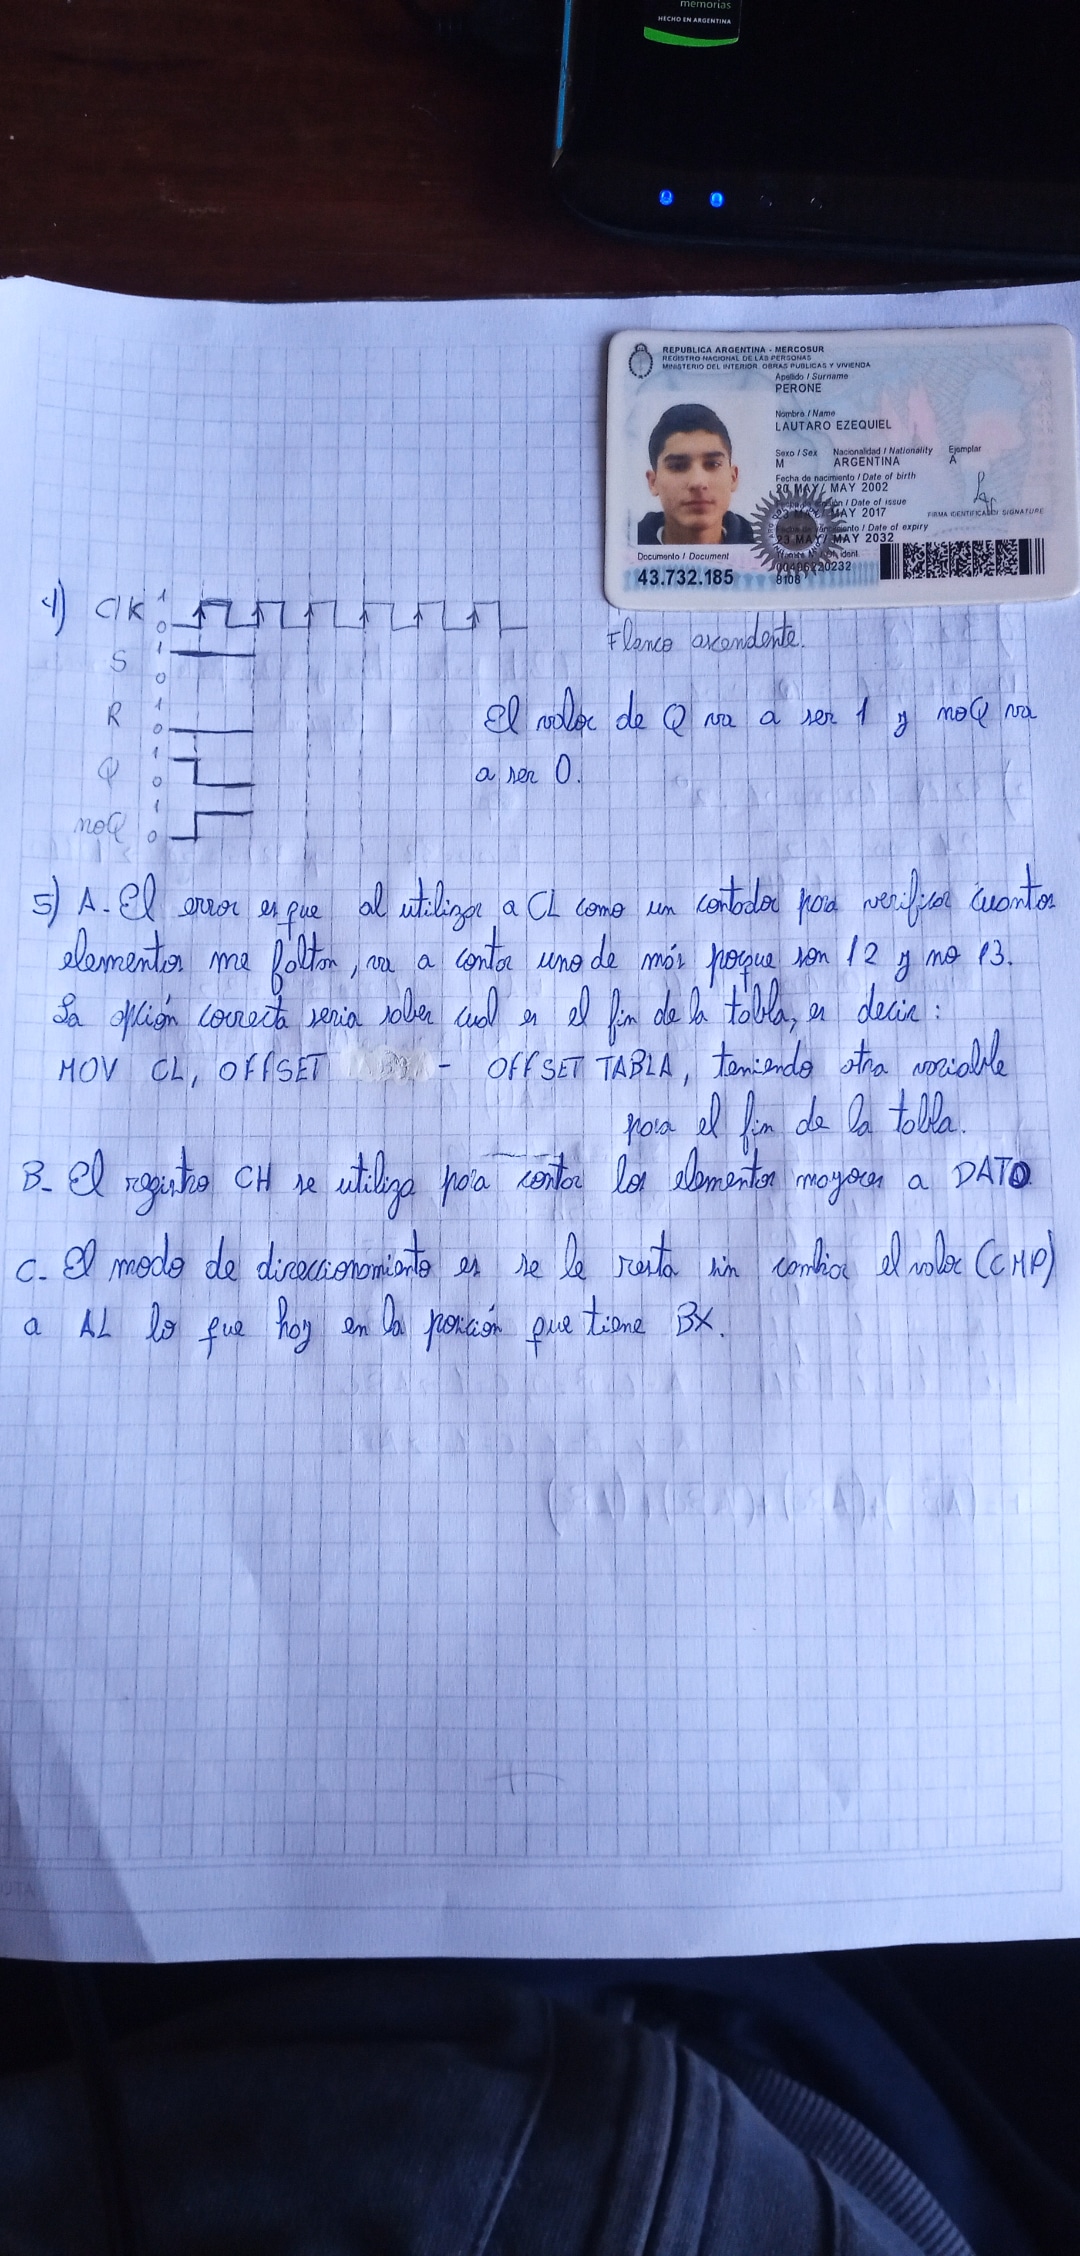 memorias
HECHO EN ARGENTINA
REPUBLICA ARGENTINA - MERCOSUR
REGISTRO NACIONAL DE LAS PERSONAS
MINISTERIO DEL INTERIOR, OBRAS PUBLICAS Y VIVIENDA
Apellido / Surname
PERONE
Nombre / Name
LAUTARO EZEQUIEL
Sexo / Sex Nacionalidad / Nationality Ejemplar
M ARGENTINA A
Fecha de nacimiento / Date of birth
20 MAY/ MAY 2002
/ Date of issue
MAY 2017
FIRMA IDENTIFICADO/ SIGNATURE
/ Date of expiry
23 MAY/ MAY 2032
Documento / Document
43.732.185
8108
4) ClK 1
0
Flanco ascendente.
S 1
0
R 1
0
El valor de Q va a ser 1 y noQ va
Q 1
0
a ser 0.
noQ 1
0
5) A- El error es que al utilizar a CL como un contador para verificar cuantos
elementos me faltan, va a contar uno de más porque son 12 y no 13.
La opción correcta seria saber cual es el fin de la tabla, es decir:
MOV CL, OFFSET - OFFSET TABLA, teniendo otra variable
para el fin de la tabla.
B- El registro CH se utiliza para contar los elementos mayores a DATO
C- El modo de direccionamiento es se le resta sin cambiar el valor (CMP)
a AL lo que hay en la posición que tiene BX.